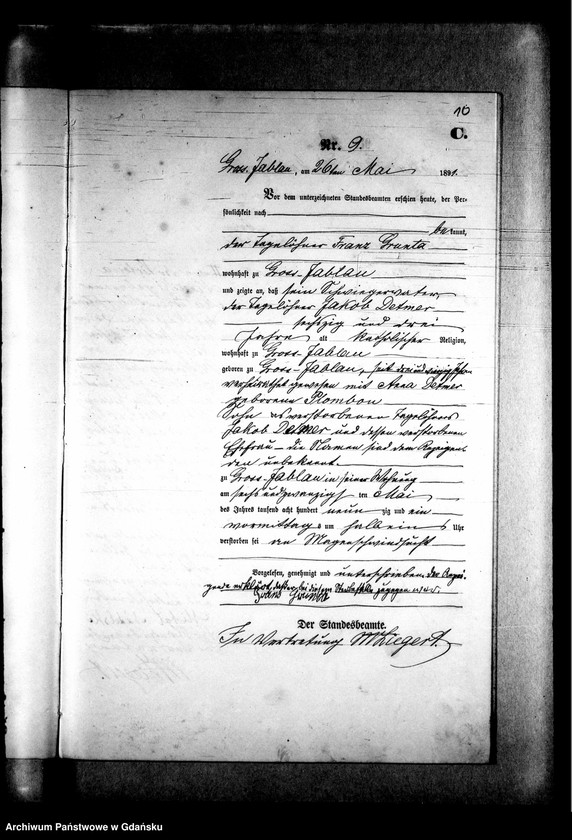 10
C.
Nr. 9.
Gross-Jablau, am 26ten Mai 1891.
Vor dem unterzeichneten Standesbeamten erschien heute, der Per-
sönlichkeit nach
bekannt,
der Tagelöhner Franz
wohnhaft zu Gross-Jablau
und zeigte an, daß sein Schwiegervater,
der Tagelöhner Jakob Detmer
sechszig und drei
Jahre alt katholischer Religion,
wohnhaft zu Gross-Jablau
geboren zu Gross-Jablau, seit
verheirathet gewesen mit Anna Detmer
geborene Plombon
Sohn des verstorbenen Tagelöhners
Jakob Detmer und dessen verstorbenen
Ehefrau – die Namen sind dem Anzeigen-
den unbekannt.
zu Gross-Jablau in seiner Wohnung
am sechs und zwanzigsten Mai
des Jahres tausend acht hundert neunzig und ein
vormittags um halb eins Uhr
verstorben sei an Magenschwindsucht
Vorgelesen, genehmigt und unterschrieben. Der Anzei-
gende erklärt, daß er bei diesem Sterbefalle zugegen
Der Standesbeamte.
In Vertretung